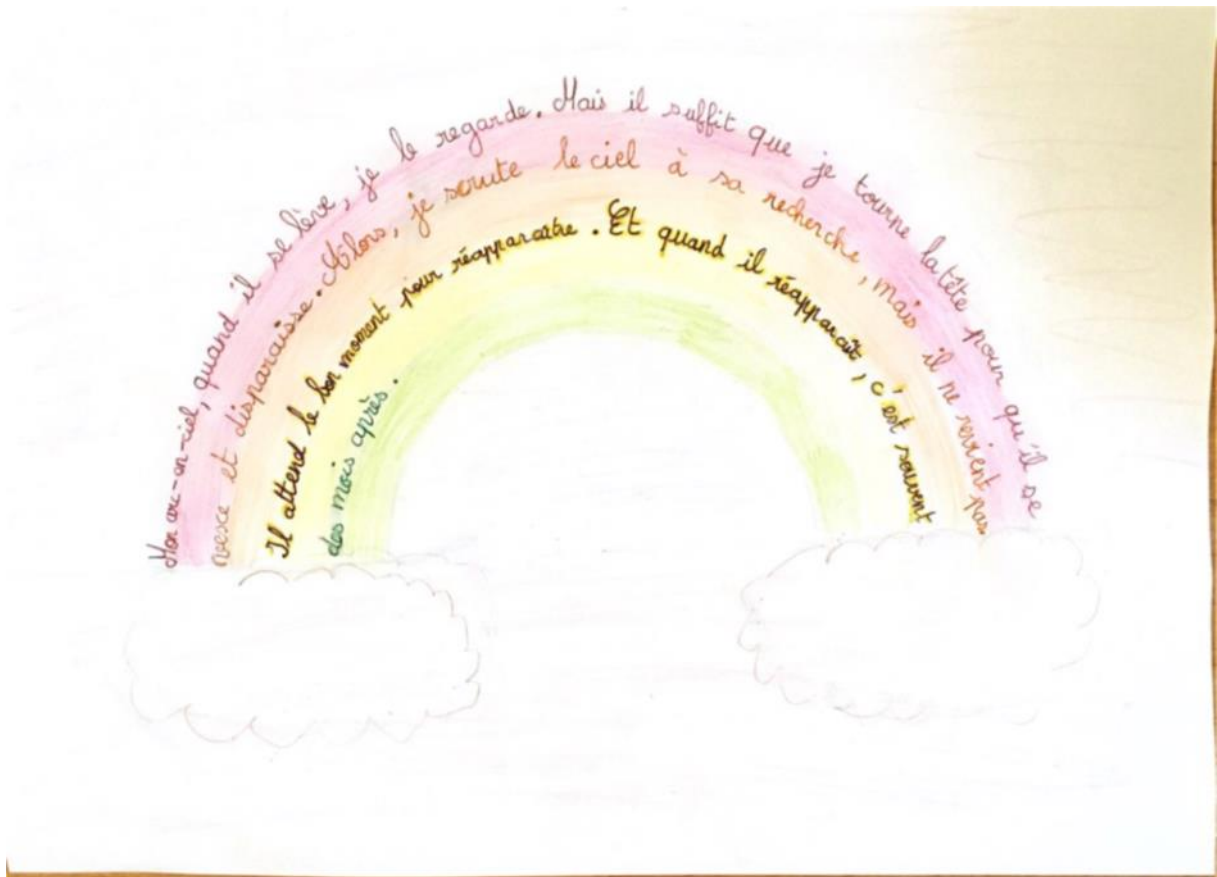 Mon arc-en-ciel, quand il se lève, je le regarde. Mais il suffit que je tourne la tête pour qu'il se
vexe et disparaisse. Alors, je scrute le ciel à sa recherche, mais il ne revient pas.
Il attend le bon moment pour réapparaître. Et quand il réapparaît, c'est souvent
des mois après.